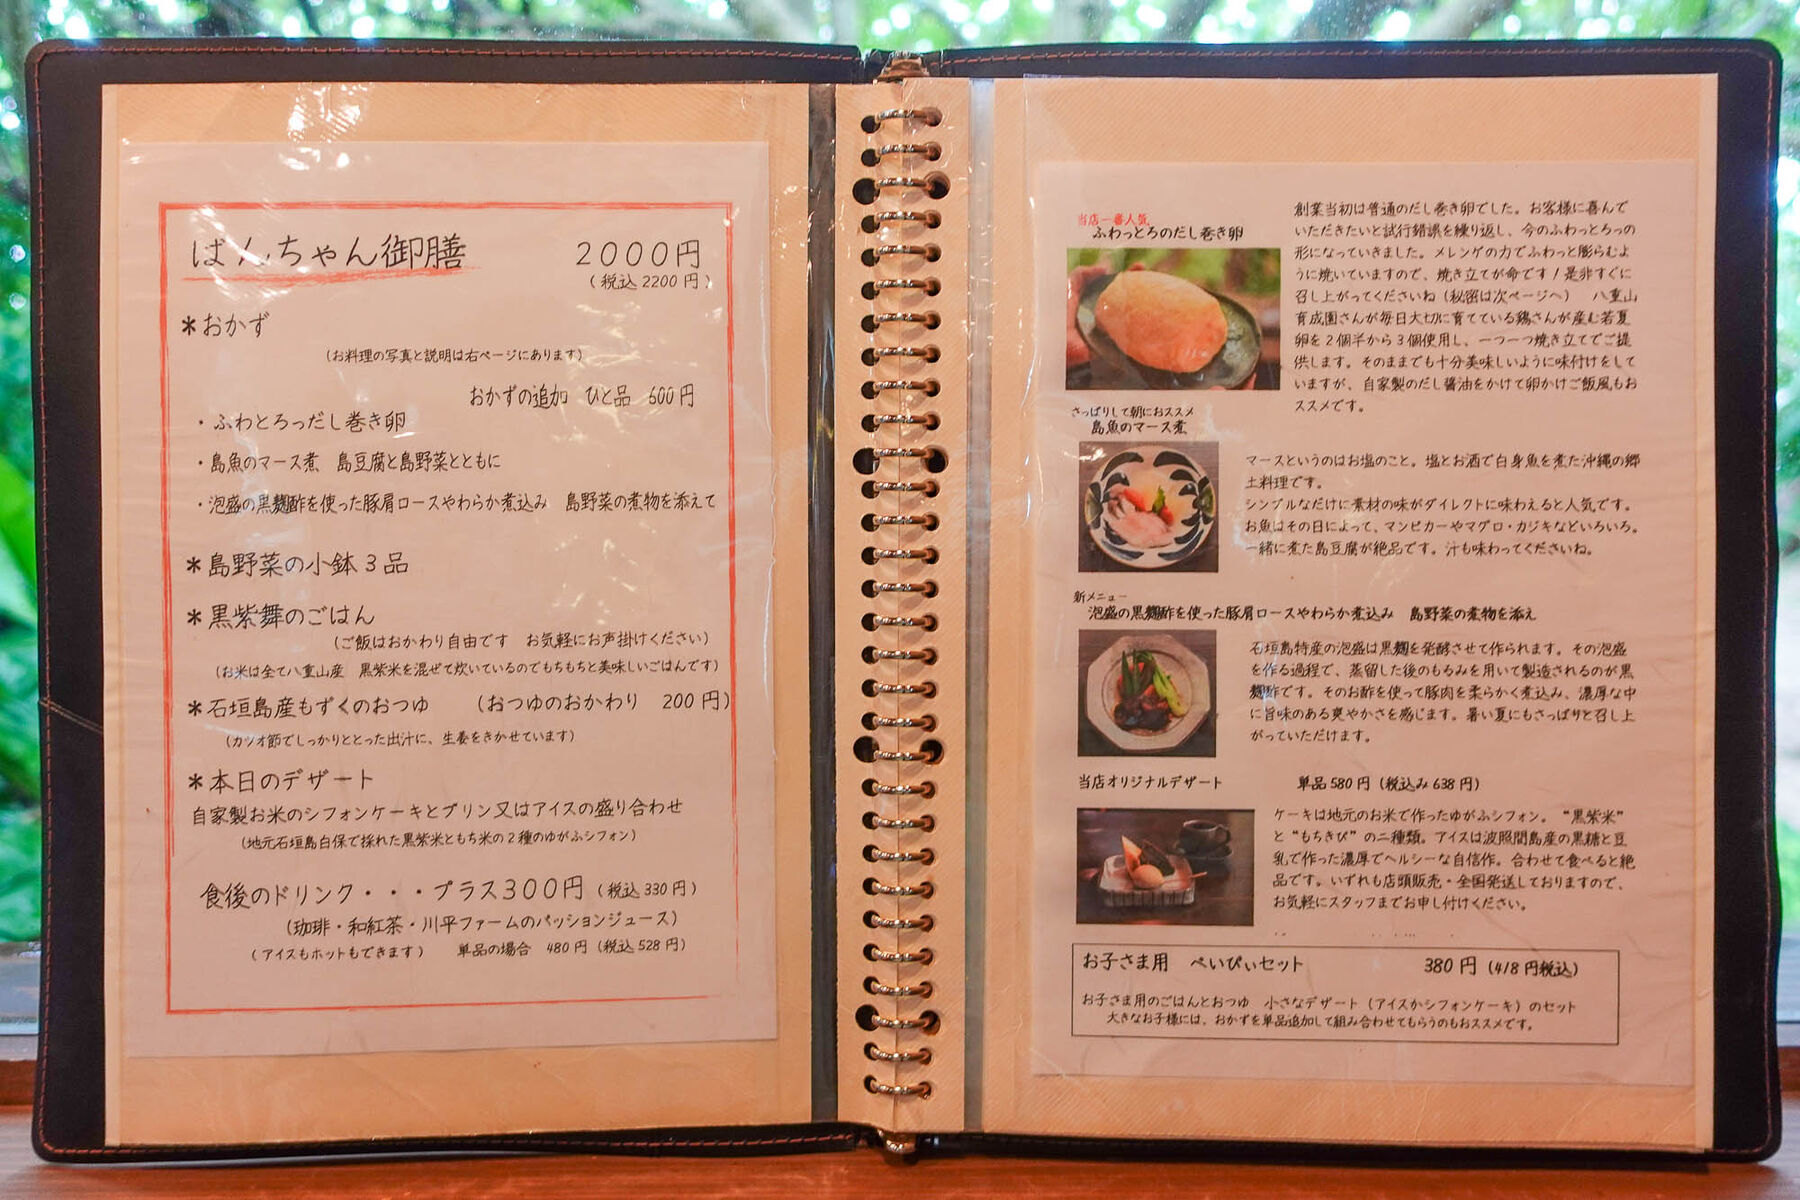 ばんちゃん御膳 2000円
(税込2200円)
*おかず
(お料理の写真と説明は右ページにあります)
おかずの追加 ひと品 600円
・ふわとろっだし巻き卵
・島魚のマース煮 島豆腐と島野菜とともに
・泡盛の黒麹酢を使った豚肩ロースやわらか煮込み 島野菜の煮物を添えて
*島野菜の小鉢3品
*黒紫舞のごはん
(ご飯はおかわり自由です お気軽にお声掛けください)
(お米は全て八重山産 黒紫米を混ぜて炊いているのでもちもちと美味しいごはんです)
*石垣島産もずくのおつゆ (おつゆのおかわり 200円)
(カツオ節でしっかりととった出汁に、生姜をきかせています)
*本日のデザート
自家製お米のシフォンケーキとプリン又はアイスの盛り合わせ
(地元石垣島白保で採れた黒紫米ともち米の2種のゆがふシフォン)
食後のドリンク・・・プラス300円(税込330円)
(珈琲・和紅茶・川平ファームのパッションジュース)
(アイスもホットもできます) 単品の場合 480円(税込528円)
当店一番人気
ふわっとろのだし巻き卵
創業当初は普通のだし巻き卵でした。お客様に喜んで
いただきたいと試行錯誤を繰り返し、今のふわっとろっの
形になっていきました。メレンゲの力でふわっと膨らむよ
うに焼いていますので、焼き立てが命です!是非すぐに
召し上がってくださいね(秘密は次ページへ) 八重山
育成園さんが毎日大切に育てている鶏さんが産む若夏
卵を2個半から3個使用し、一つ一つ焼き立てでご提
供します。そのままでも十分美味しいように味付けをして
いますが、自家製のだし醤油をかけて卵かけご飯風もお
ススメです。
さっぱりして朝におススメ
島魚のマース煮
マースというのはお塩のこと。塩とお酒で白身魚を煮た沖縄の郷
土料理です。
シンプルなだけに素材の味がダイレクトに味わえると人気です。
お魚はその日によって、マンビカーやマグロ・カジキなどいろいろ。
一緒に煮た島豆腐が絶品です。汁も味わってくださいね。
新メニュー
泡盛の黒麹酢を使った豚肩ロースやわらか煮込み 島野菜の煮物を添え
石垣島特産の泡盛は黒麹を発酵させて作られます。その泡盛
を作る過程で、蒸留した後のもろみを用いて製造されるのが黒
麹酢です。そのお酢を使って豚肉を柔らかく煮込み、濃厚な中
に旨味のある爽やかさを感じます。暑い夏にもさっぱりと召し上
がっていただけます。
当店オリジナルデザート 単品580円(税込み638円)
ケーキは地元のお米で作ったゆがふシフォン。“黒紫米”
と“もちきび”の二種類。アイスは波照間島産の黒糖と豆
乳で作った濃厚でヘルシーな自信作。合わせて食べると絶
品です。いずれも店頭販売・全国発送しておりますので、
お気軽にスタッフまでお申し付けください。
お子さま用 べいびぃセット 380円(418円税込)
お子さま用のごはんとおつゆ 小さなデザート(アイスかシフォンケーキ)のセット
大きなお子様には、おかずを単品追加して組み合わせてもらうのもおススメです。